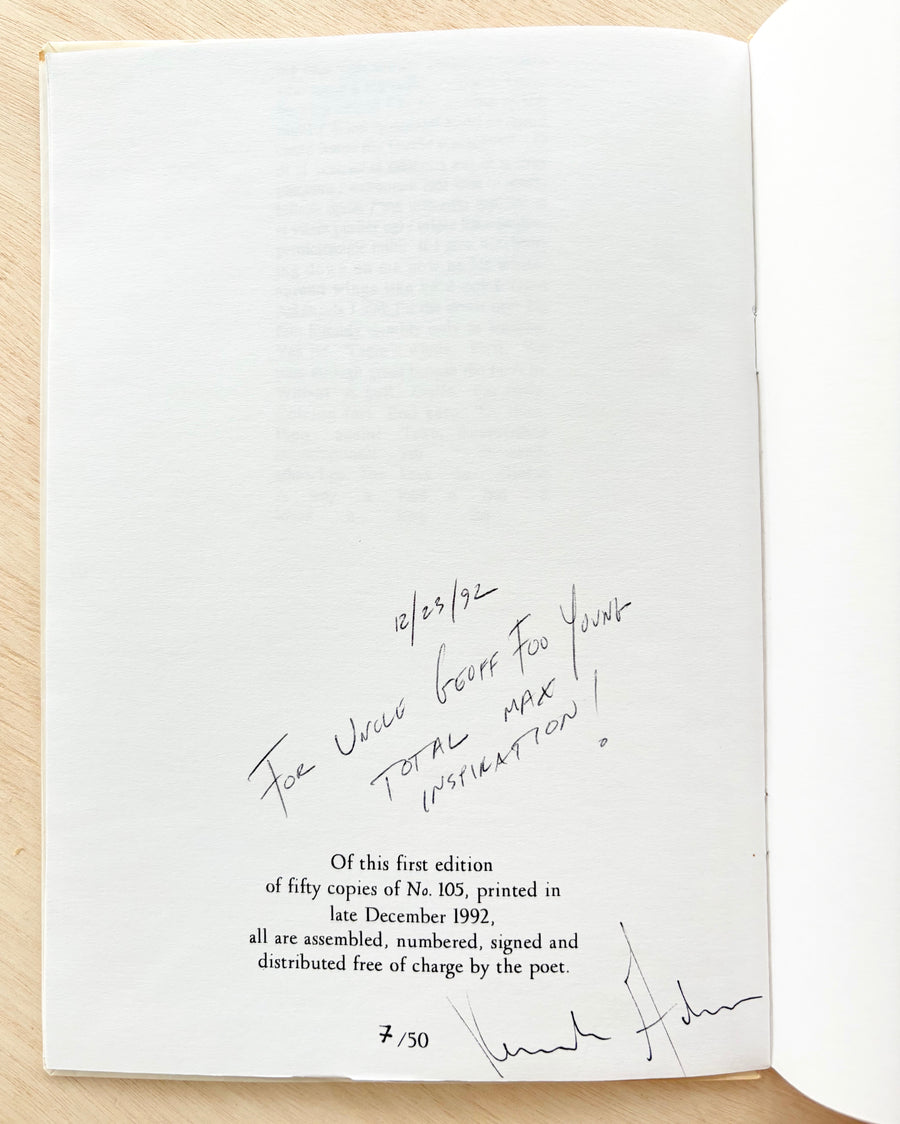 12/23/92
FOR UNCLE GEOFF FOO YOUNG
TOTAL MAX
INSPIRATION!
Of this first edition
of fifty copies of No. 105, printed in
late December 1992,
all are assembled, numbered, signed and
distributed free of charge by the poet.
7/50